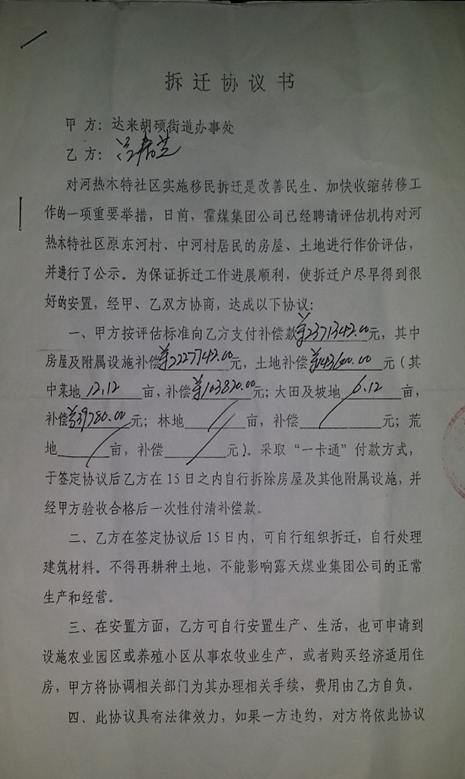 拆迁协议书
甲方：达来胡硕街道办事处
乙方：
对河热木特社区实施移民拆迁是改善民生、加快收缩转移工
作的一项重要举措，日前，霍煤集团公司已经聘请评估机构对河
热木特社区原东河村、中河村居民的房屋、土地进行作价评估，
并进行了公示。为保证拆迁工作进展顺利，使拆迁户尽早得到很
好的安置，经甲、乙双方协商，达成以下协议：
一、甲方按评估标准向乙方支付补偿款¥2371342.00元，其中
房屋及附属设施补偿¥2227742.00元，土地补偿¥143600.00元（其
中菜地12.12亩，补偿¥103820.00元；大田及坡地6.12亩，
补偿¥39780.00元；林地 亩，补偿 元；荒
地 亩，补偿 元）。采取“一卡通”付款方式，
于签定协议后乙方在15日之内自行拆除房屋及其他附属设施，并
经甲方验收合格后一次性付清补偿款。
二、乙方在签定协议后15日内，可自行组织拆迁，自行处理
建筑材料。不得再耕种土地，不能影响露天煤业集团公司的正常
生产和经营。
三、在安置方面，乙方可自行安置生产、生活，也可申请到
设施农业园区或养殖小区从事农牧业生产，或者购买经济适用住
房，甲方将协调相关部门为其办理相关手续，费用由乙方自负。
四、此协议具有法律效力，如果一方违约，对方将依此协议